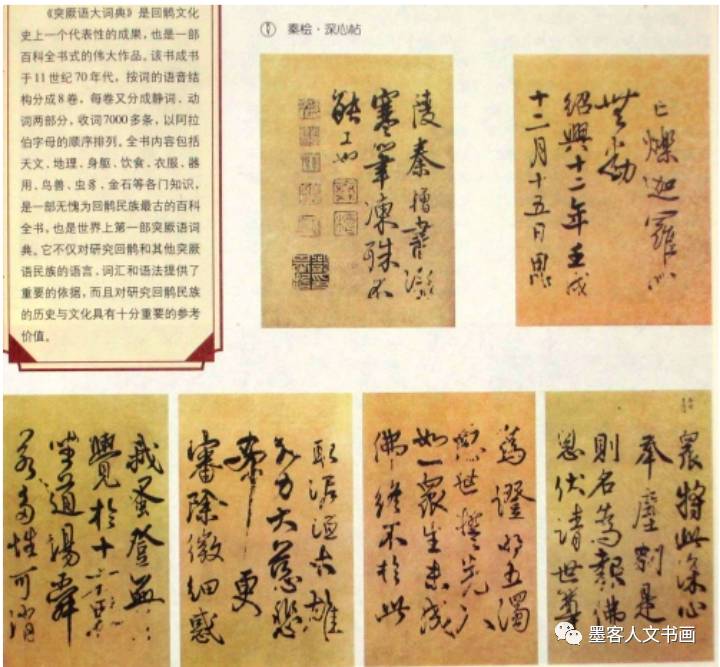 《突厥语大词典》是回鹘文化
史上一个代表性的成果,也是一部
百科全书式的伟大作品。该书成书
于11世纪70年代,按词的语音结
构分成8卷,每卷又分成静词、动
词两部分,收词7000多条,以阿拉
伯字母的顺序排列。全书内容包括
天文、地理、身躯、饮食、衣服、器
用、鸟兽、虫豸、金石等各门知识,
是一部无愧为回鹘民族最古的百科
全书,也是世界上第一部突厥语词
典。它不仅对研究回鹘和其他突厥
语民族的语言,词汇和语法提供了
重要的依据,而且对研究回鹘民族
的历史与文化具有十分重要的参考
价值。
① 秦桧·深心帖
衆將此深心
奉塵刹是
則名為報佛
恩伏請世尊
為證明五濁
惡世誓先入
如一衆生未成
佛終不於此
取泥洹大雄
大力大慈悲
希更
審除微細惑
我蚤登無上
覺於十方界
坐道場舜
若多性可消
亡爍迦羅心
無動
紹興十二年壬戌
十二月十五日思
陵秦檜書
寒筆凍殊不
能工也
墨客人文书画